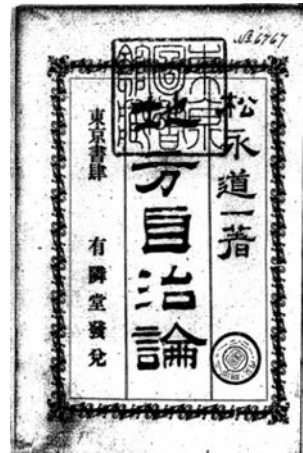 № 6767
松永道一著
地方自治論
東京書肆 有隣堂發兌